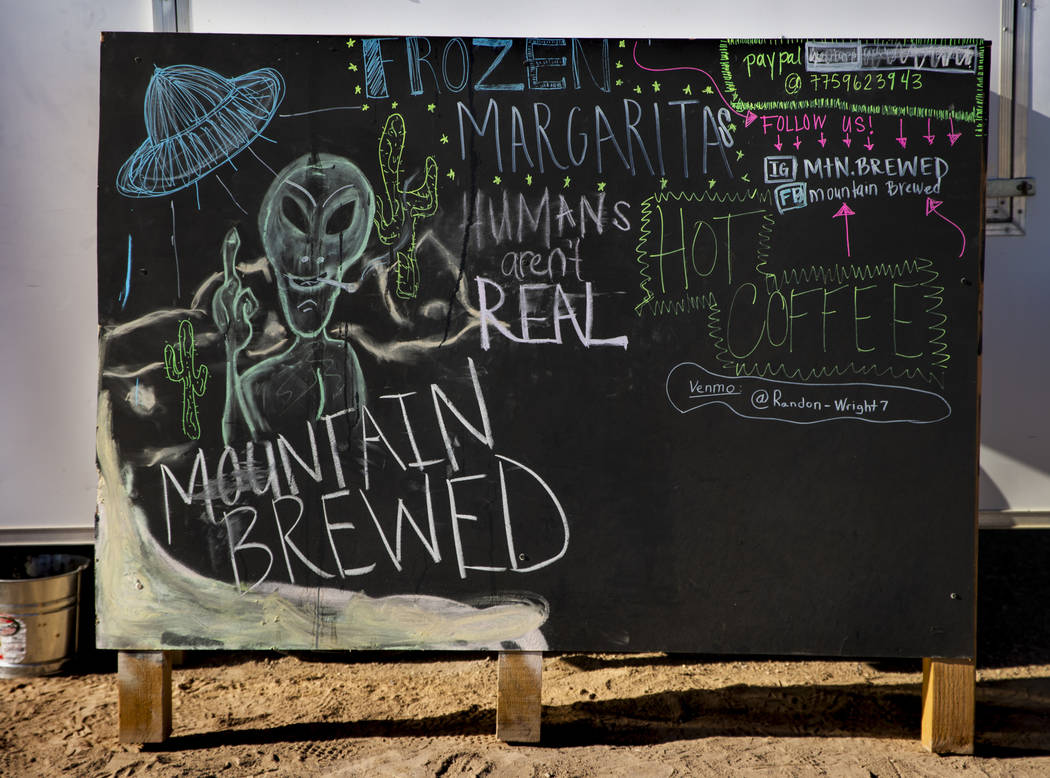 FROZEN
MARGARITAS
HUMANS
aren't
REAL
MOUNTAIN
BREWED
paypal
@ 7759623943
FOLLOW US!
IG MtN.BREWED
FB mountain Brewed
HOT
COFFEE
Venmo:
@Randon-Wright7